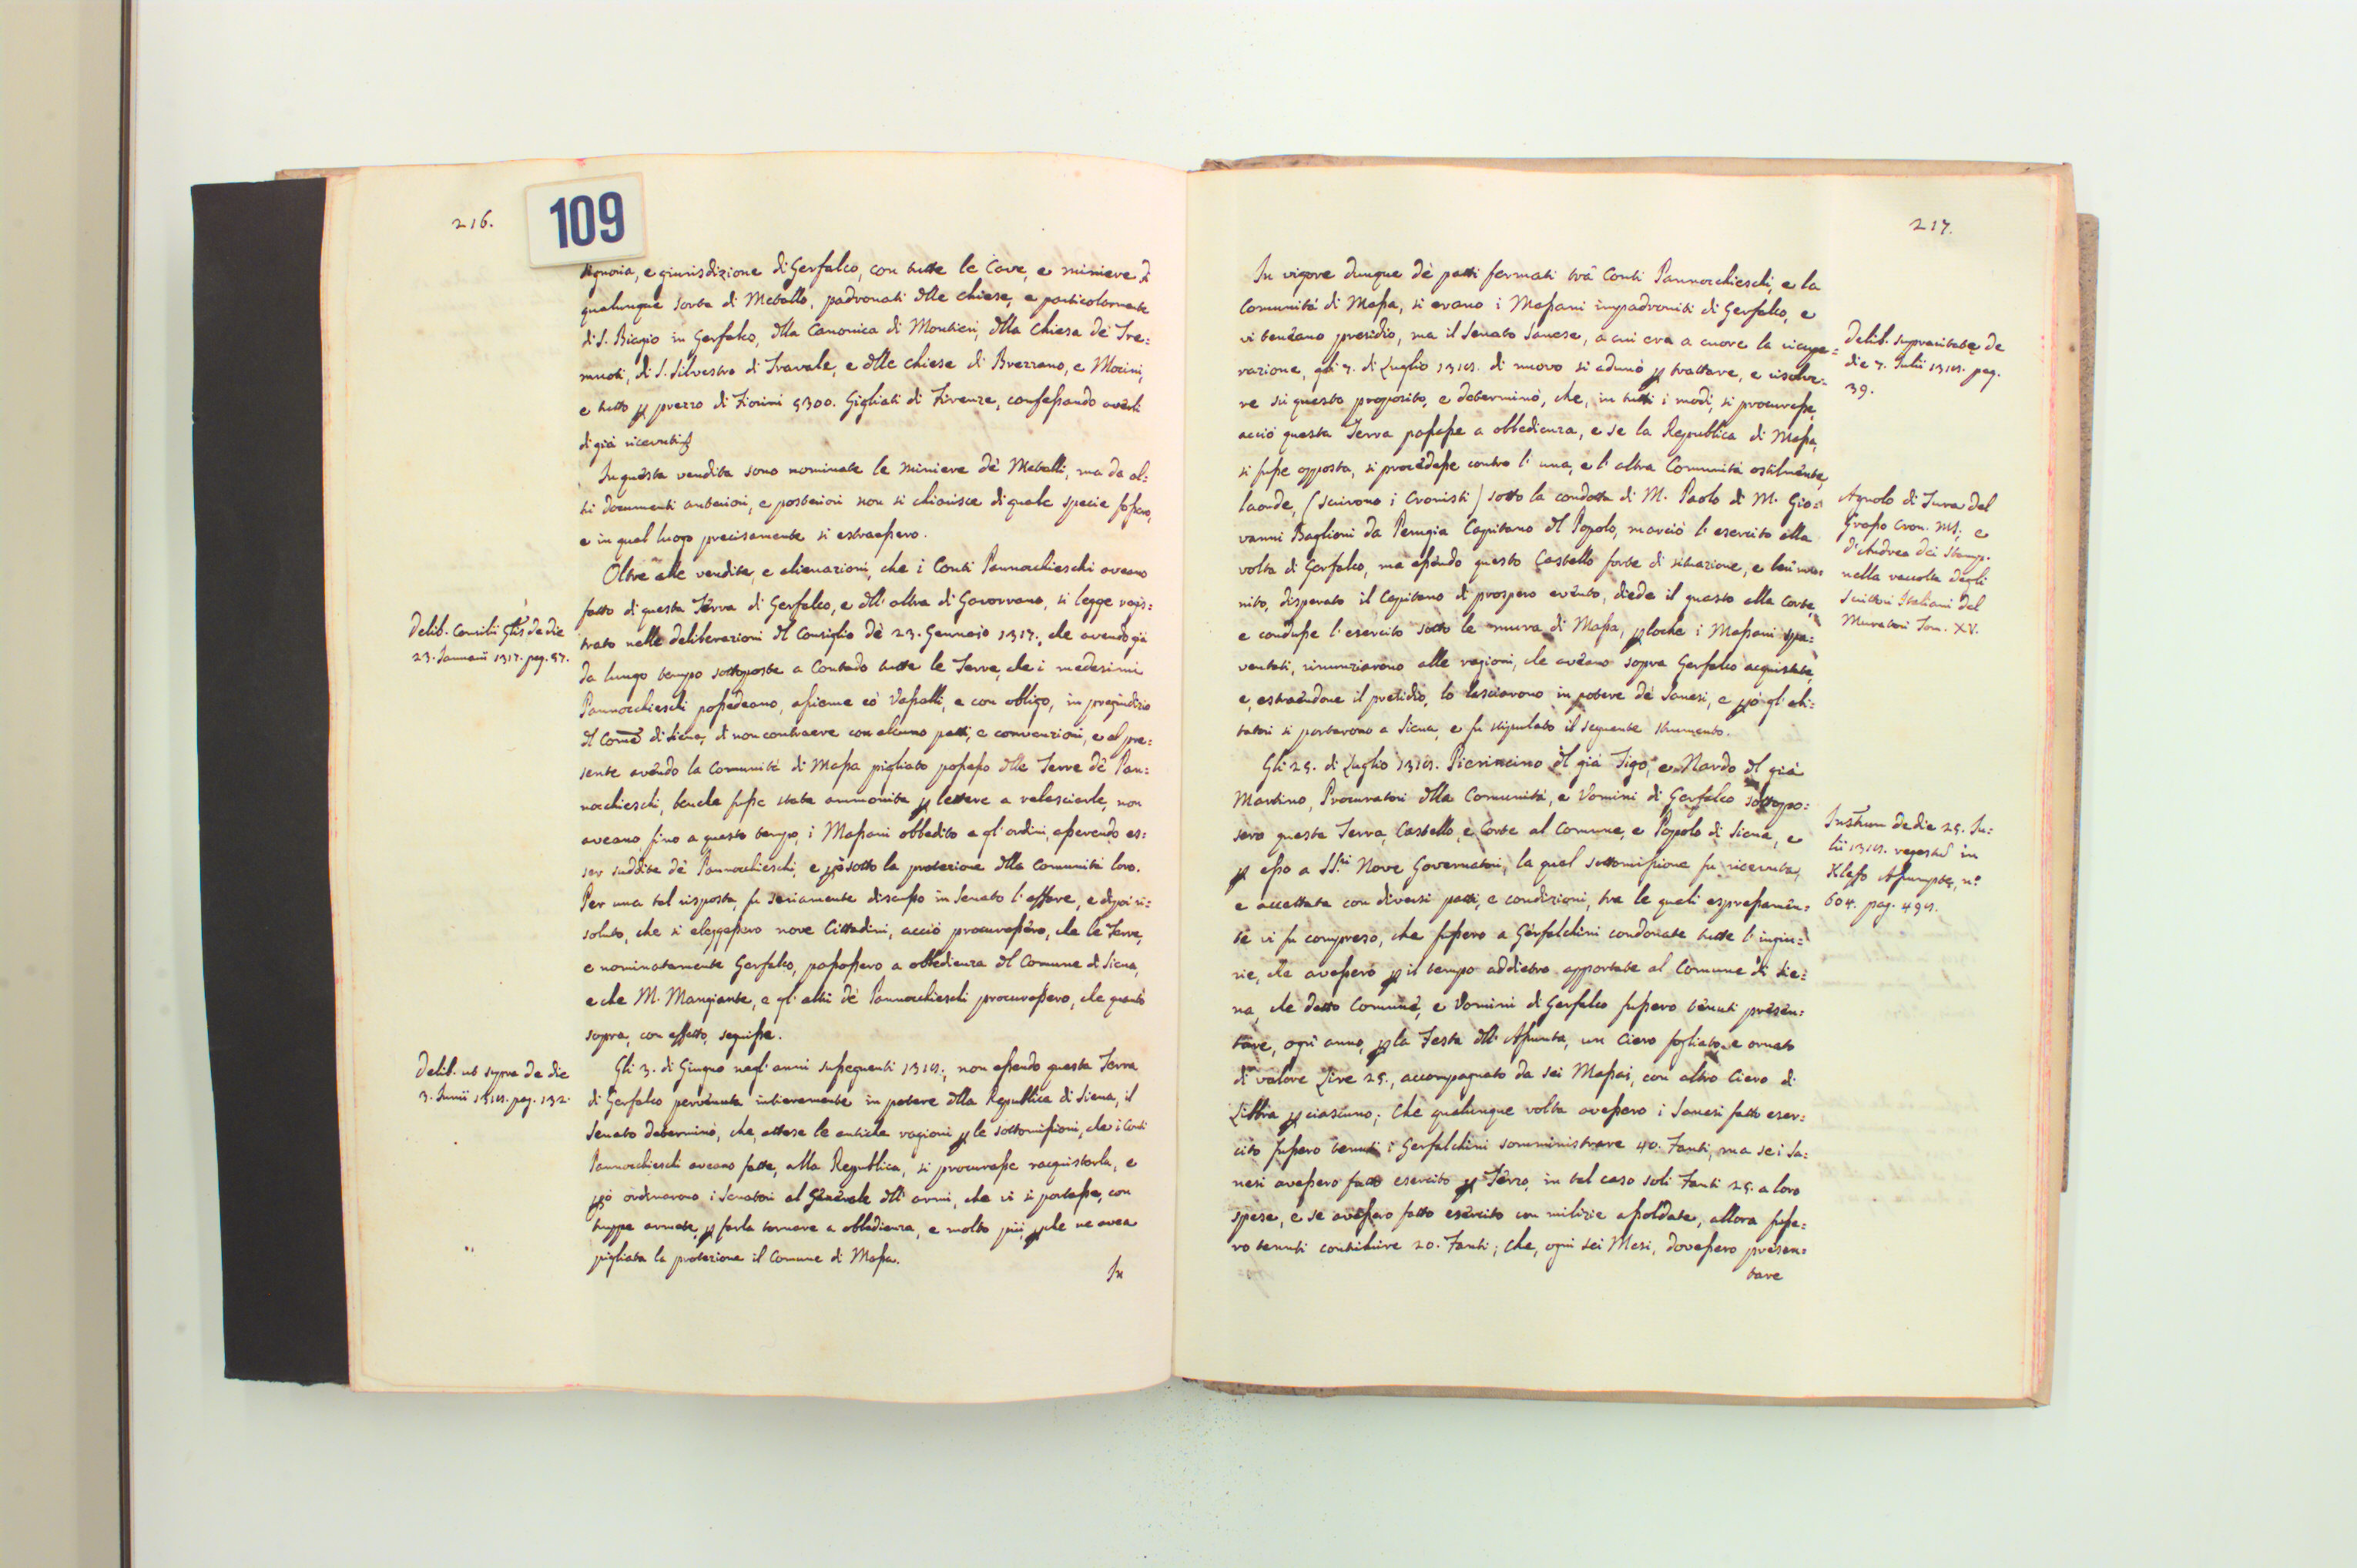 216.
109
signoria, e giurisdizione di Gerfalco, con tutte le Cave, e miniere di
qualunque sorta di Metallo, padronati dlle chiese, e particolarmente
di S. Biagio in Gerfalco, dlla Canonica di Montieri, dlla Chiesa de' Tre=
muoti, di S. Silvestro di Travale, e dlle chiese di Brezzano, e Morini,
e tutto p prezzo di Fiorini 5300. Gigliati di Firenze, confessando averli
di già ricevuti
In questa vendita sono nominate le miniere dè Metalli, ma da al=
tri documenti anteriori, e posteriori non si chiarisce di quale specie fossero,
e in qual luogo precisamente si estraessero.
Oltre alle vendite, e alienazioni, che i Conti Pannocchieschi aveano
fatto di questa Terra di Gerfalco, e dll' altra di Gavorrano, si legge regis=
trato nelle deliberazioni dl Consiglio dè 23. Gennaio 1317., che avendo già
da lungo tempo sottoposte a Contado tutte le Terre, che i medesimi
Pannocchieschi possedeano, assieme cò Vassalli, e con obligo, in pregiudizio
dl Comè di Siena, di non contraere con alcuno patti, e convenzioni, e al pre=
sente avendo la Comunità di Massa pigliato possesso dlle Terre dè Pan=
nocchieschi, benche fusse stata ammonita p lettere a relasciarle, non
aveano, fino a questo tempo, i Massani obbedito a gl'ordini, asserendo es=
ser suddite dè Pannocchieschi, e pò sotto la protezione dlla Comunità loro.
Per una tal risposta, fu seriamente discusso in Senato l'affare, e dipoi ri=
soluto, che si eleggessero nove Cittadini, acciò procurassero, che le Terre,
e nominatamente Gerfalco, passassero a obbedienza dl Comune di Siena,
e che M. Mangiante, e gl'altri dè Pannocchieschi procurassero, che quanto
sopra, con effetto, seguisse.
Gli 3. di Giugno negl'anni susseguenti 1318., non essendo questa Terra
di Gerfalco pervenuta intieramente in potere dlla Republica di Siena, il
Senato determinò, che, attese le antiche ragioni p le sottomissioni, che i Conti
Pannocchieschi aveano fatte, alla Republica, si procurasse racquistarla, e
pò ordinarono i Senatori al Generale dll' armi, che vi si portasse, con
truppe armate, p farla tornare a obbedienza, e molto più, pche ne avea
pigliata la protezione il Comune di Massa.
In
Delib. Consilii Glis de die
23. Jannarii 1317. pag. 57.
Delib. ut supra de die
3. Junii 1318. pag. 132.
217.
In vigore dunque dè patti fermati trà Conti Pannocchieschi, e la
Comunità di Massa, si erano i Massani impadroniti di Gerfalco, e
vi teneano presidio, ma il Senato Sanese, a cui era a cuore la ricupe=
razione, gli 7. di Luglio 1318. di nuovo si adunò p trattare, e risolve=
re su questo proposito, e determinò, che, in tutti i modi, si procurasse,
acciò questa Terra passasse a obbedienza, e se la Republica di Massa,
si fusse opposta, si procedesse contro l'una, e l'altra Comunità ostilmente,
laonde, (scrivono i Cronisti) sotto la condotta di M. Paolo di M. Gio=
vanni Baglioni da Perugia Capitano dl Popolo, marciò l'esercito alla
volta di Gerfalco, ma essendo questo Castello forte di situazione, e ben mu=
nito, disperato il Capitano di prospero evento, diede il guasto alla Corte,
e condusse l'esercito sotto le mura di Massa, ploche i Massani spa=
ventati, rinunziarono alle ragioni, che aveano sopra Gerfalco acquistate,
e, estraendone il presidio, lo lasciarono in potere dè Sanesi, e pò gl'abi=
tatori si portarono a Siena, e fu stipulato il seguente strumento.
Gli 25. di Luglio 1318. Pierincino dl già Tigo, e Nardo dl già
Martino, Procuratori dlla Comunità, e Vomini di Gerfalco sottopo=
sero questa Terra, Castello, e Corte al Comune, e Popolo di Siena, e
p esso a SS.ri Nove Governatori, la qual sottomissione fu ricevuta,
e accettata con diversi patti, e condizioni, tra le quali espressamen=
te vi fu compreso, che fussero a Gerfalchini condonate tutte l'ingiu=
rie, che avessero p il tempo addietro apportate al Comune di Sie=
na, che detto Comune, e Vomini di Gerfalco fussero tenuti presen=
tare, ogni anno, p la Festa dll' Assunta, un Ciero fogliato, e ornato
di valore Lire 25., accompagnato da sei Massai, con altro Ciero di
Libbra p ciascuno; Che qualunque volta avessero i Sanesi fatto eser=
cito fussero tenuti i Gerfalchini somministrare 40. Fanti, ma se i Sa=
nesi avessero fatto esercito p Terzo, in tal caso soli Fanti 25. a loro
spese, e se avessero fatto esercito con milizie assoldate, allora fusse=
ro tenuti contribuire 20. Fanti; Che, ogni sei Mesi, dovessero presen=
tare
Delib. supracitatae de
die 7. Julii 1318. pag.
39.
Agnolo di Tura del
Grasso Cron. MS; e
d'Andrea Dei Stamp.
nella raccolta degli
Scrittori Italiani del
Muratori Tom. XV.
Instrum de die 25. Ju=
lii 1318. regestû in
Kleffo Assumptae, n.°
604. pag. 498.